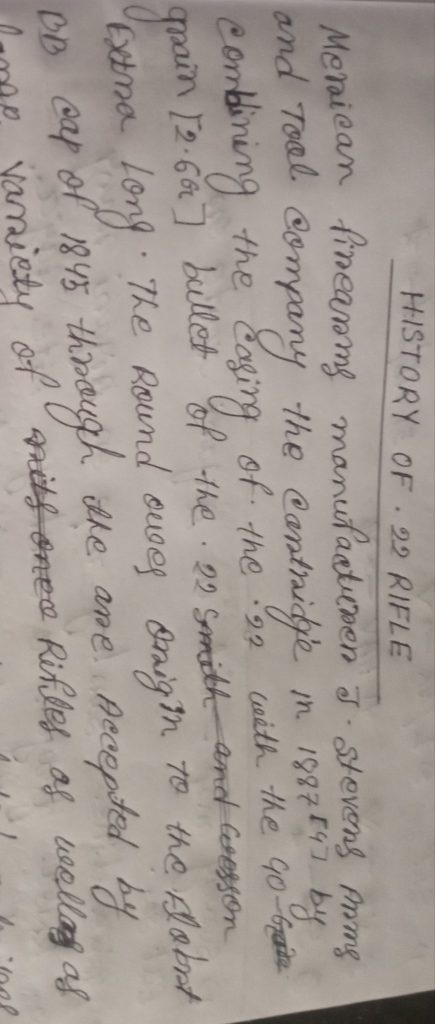 HISTORY OF .22 RIFLE
Merican firearms manufacturer J. Stevens Arms
and Tool Company the Cartridge in 1887 [4] by
Combining the Casing of the .22 with the 40-
grain [2.6a] bullet of the .22 smith and wesson
Extra Long. The Round owes Origin to the Flobrt
BB Cap of 1845 through the are Accepted by
large variety of Rifles as well as as